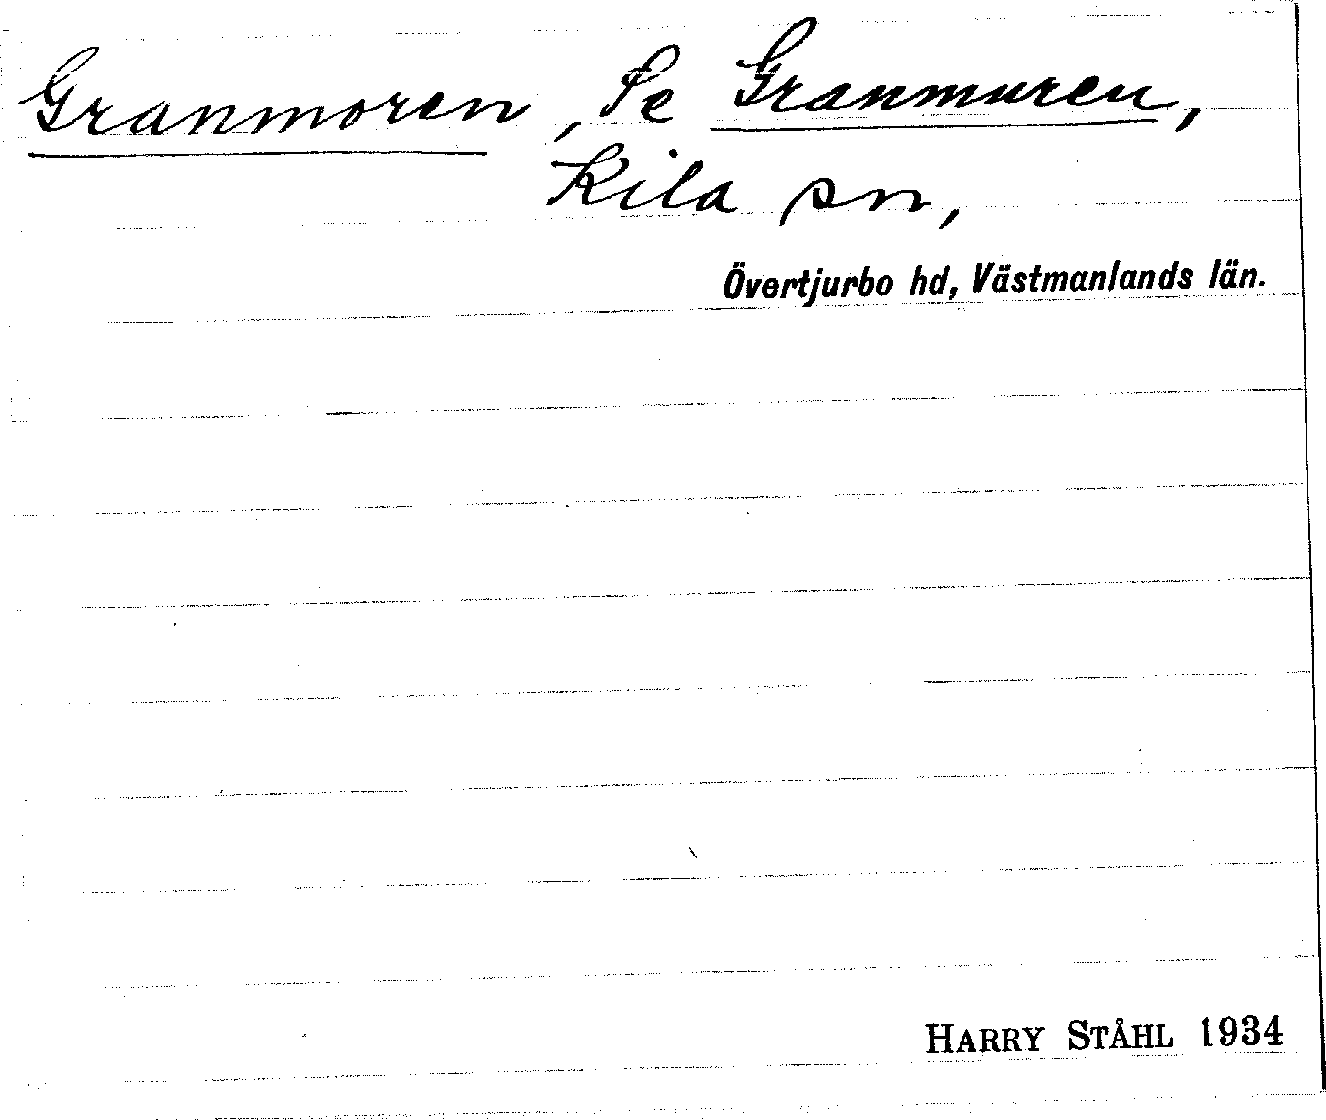 Granmoren, Se Granmuren,
Kila sn,
Övertjurbo hd, Västmanlands län.
HARRY STÅHL 1934